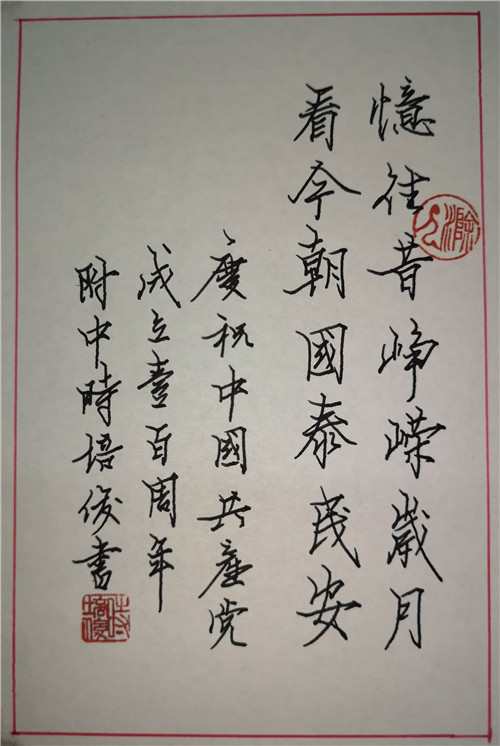 憶往昔崢嶸歲月
看今朝國泰民安
慶祝中國共產党
成立壹百周年
附中時培俊書